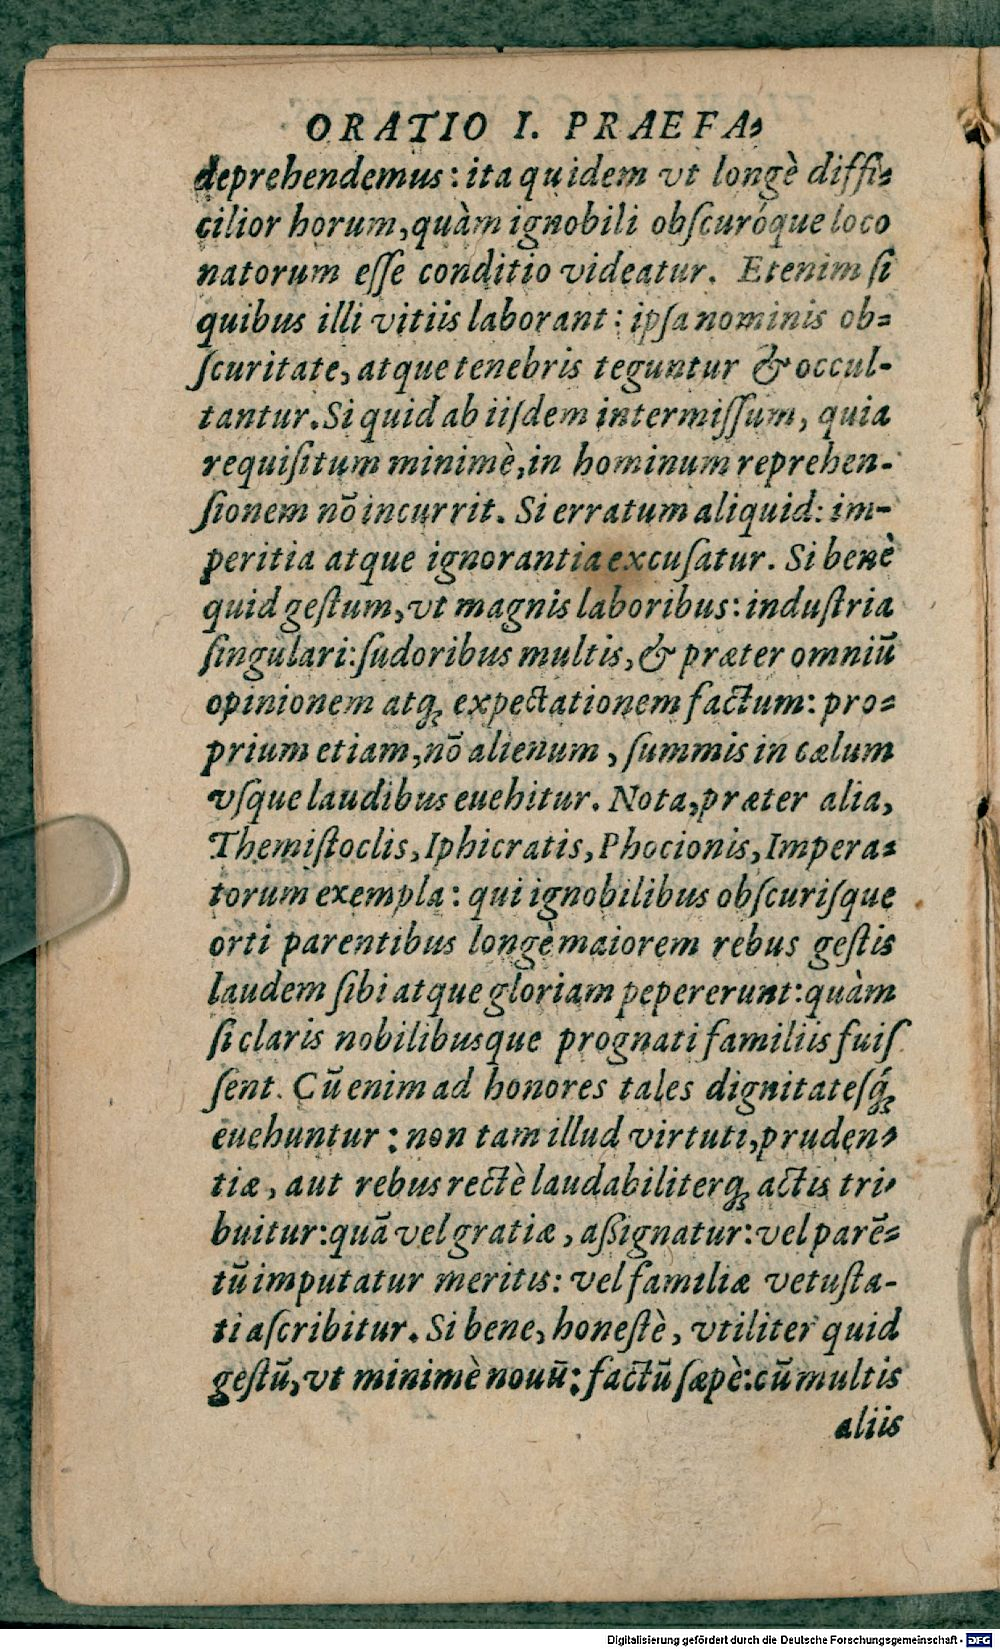 ORATIO I. PRAEFA-
deprehendemus: ita quidem vt longè diffi-
cilior horum, quàm ignobili obſcuróque loco
natorum eſſe conditio videatur. Etenim ſi
quibus illi vitiis laborant: ipſa nominis ob-
ſcuritate, atque tenebris teguntur & occul-
tantur. Si quid ab iiſdem intermiſſum, quia
requiſitum minimè, in hominum reprehen-
ſionem nō incurrit. Si erratum aliquid: im-
peritia atque ignorantia excuſatur. Si benè
quid geſtum, vt magnis laboribus: induſtria
ſingulari: ſudoribus multis, & præter omniū
opinionem atq; expectationem factum: pro-
prium etiam, nō alienum, ſummis in cælum
vſque laudibus euehitur. Nota, præter alia,
Themiſtoclis, Iphicratis, Phocionis, Impera-
torum exempla: qui ignobilibus obſcuriſque
orti parentibus longè maiorem rebus geſtis
laudem ſibi atque gloriam pepererunt: quàm
ſi claris nobilibusque prognati familiis fuiſ
ſent. Cū enim ad honores tales dignitateſq́;
euehuntur: non tam illud virtuti, pruden-
tiæ, aut rebus rectè laudabiliterq; actis tri-
buitur: quā vel gratiæ, aßignatur: vel parē-
tū imputatur meritis: vel familiæ vetuſta-
ti aſcribitur. Si bene, honeſtè, vtiliter quid
geſtū, vt minimè nouū: factū ſæpè: cū multis
aliis
Digitalisierung gefördert durch die Deutsche Forschungsgemeinschaft - DFG